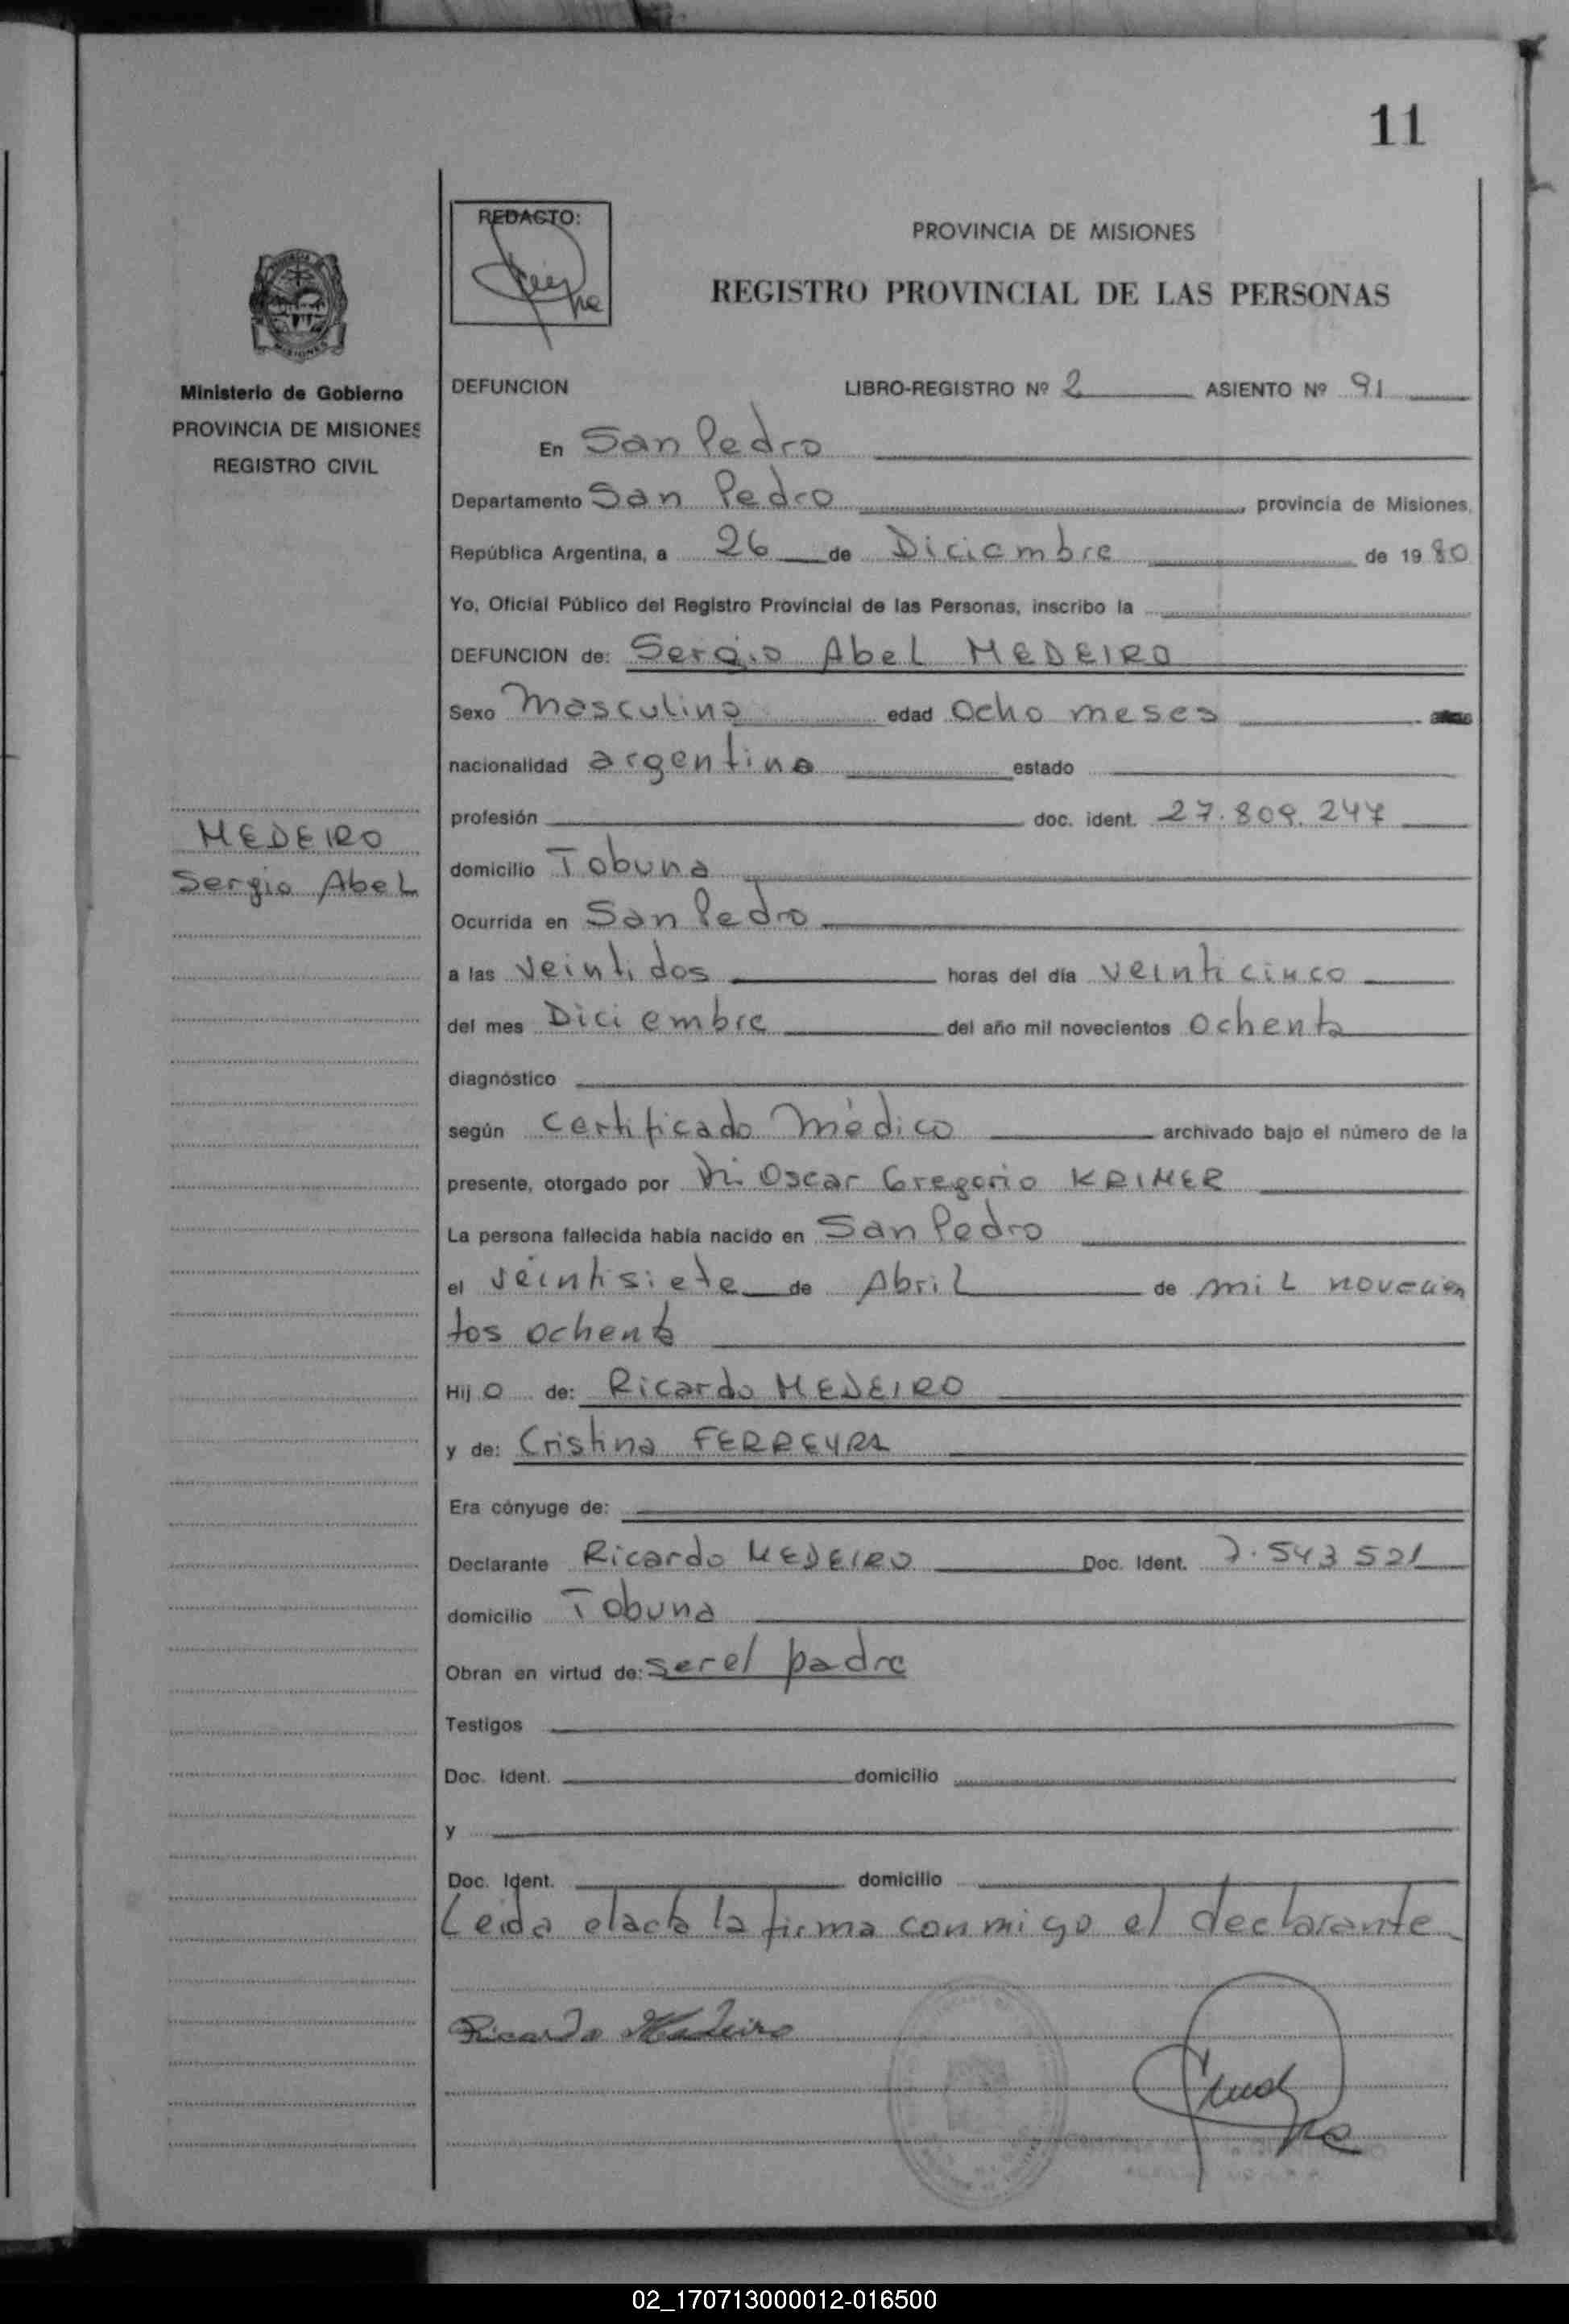 11
REDACTO:
PROVINCIA DE MISIONES
REGISTRO PROVINCIAL DE LAS PERSONAS
Ministerio de Gobierno
PROVINCIA DE MISIONES
REGISTRO CIVIL
DEFUNCION LIBRO-REGISTRO Nº 2 ASIENTO Nº 91
En San Pedro
Departamento San Pedro, provincia de Misiones,
República Argentina, a 26 de Diciembre de 1980
Yo, Oficial Público del Registro Provincial de las Personas, inscribo la
DEFUNCION de: Sergio Abel MEDEIRO
Sexo Masculino edad Ocho meses
nacionalidad argentina estado
profesión doc. ident. 27.809.247
MEDEIRO
Sergio Abel
domicilio Tobuna
Ocurrida en San Pedro
a las Veintidos horas del día veinticinco
del mes Diciembre del año mil novecientos Ochenta
diagnóstico
según Certificado Médico archivado bajo el número de la
presente, otorgado por Dr. Oscar Gregorio KRIMER
La persona fallecida había nacido en San Pedro
el veintisiete de Abril de mil novecien
tos ochenta
Hijo de: Ricardo MEDEIRO
y de: Cristina FERREYRA
Era cónyuge de:
Declarante Ricardo MEDEIRO Doc. Ident. 7.543521
domicilio Tobuna
Obran en virtud de: ser el padre
Testigos
Doc. Ident. domicilio
y
Doc. Ident. domicilio
Leida el acta la firma conmigo el declarante
Ricardo Madeiro
02_170713000012-016500